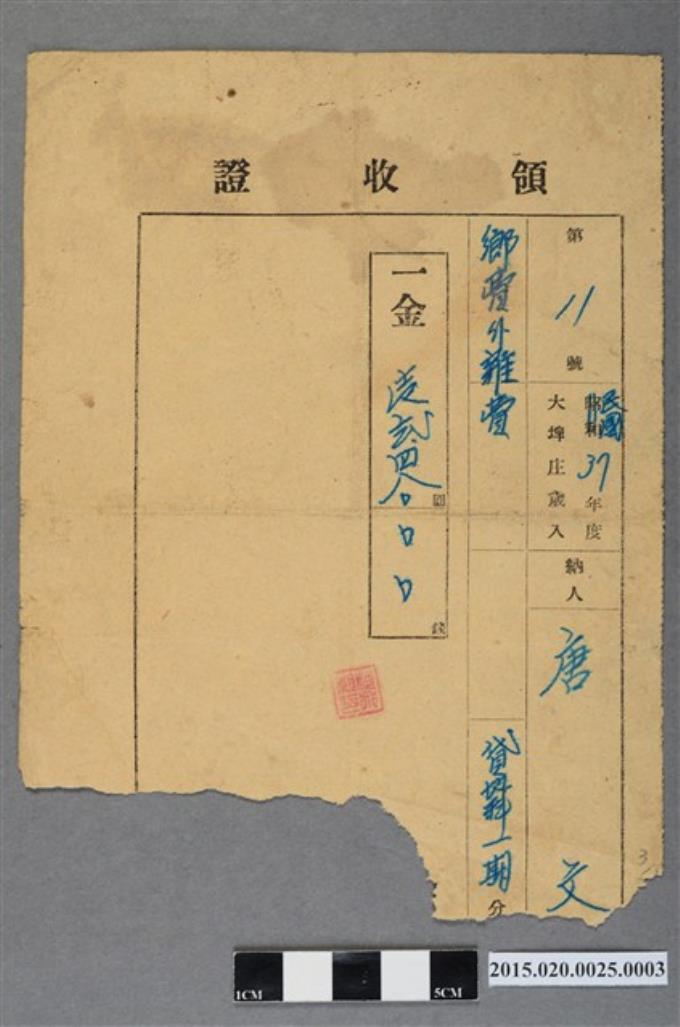 領收證
第11號
民國37年度
大埤庄歲入
納人
唐
文
鄉費外雜費
貸料一期
分
一金
圓
錢
3
1CM
5CM
2015.020.0025.0003